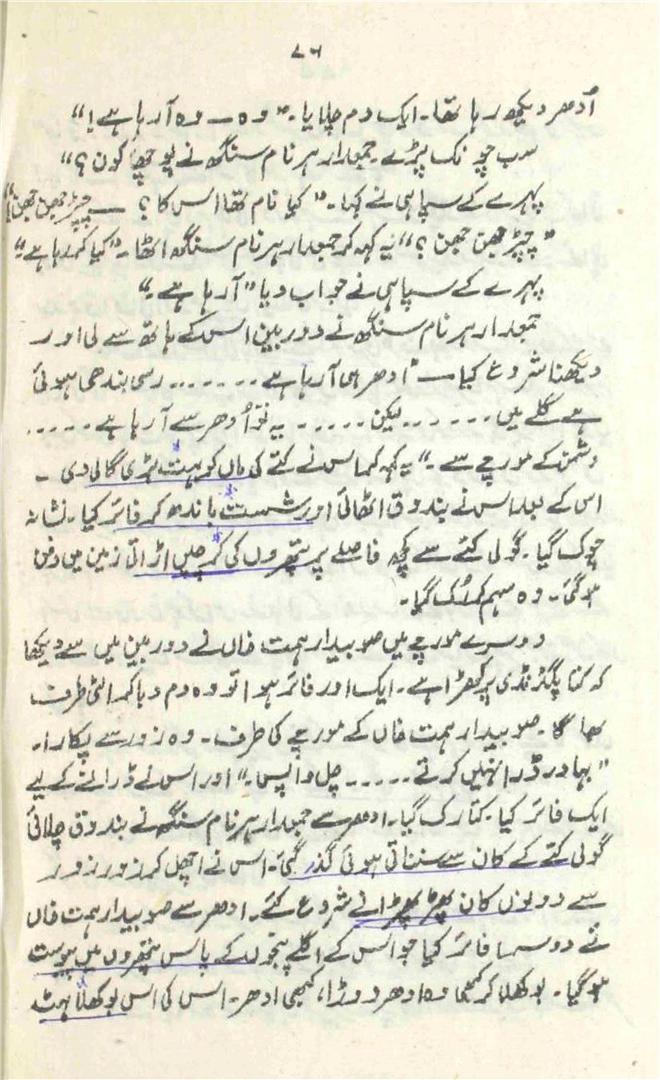 ۷۶
اُدھر دیکھ رہا تھا۔ ایک دم چلایا۔ "وہ ــ وہ آرہا ہے!"
سب چونک پڑے۔ جمعدار ہرنام سنگھ نے پوچھا "کون؟"
پہرے کے سپاہی نے کہا۔ "کیا نام تھا اس کا؟ ــ چپڑ جھن جھن!"
"چپڑ جھن جھن؟" یہ کہہ کر جمعدار ہرنام سنگھ اٹھا۔ "کیا کر رہا ہے"
پہرے کے سپاہی نے جواب دیا "آرہا ہے۔"
جمعدار ہرنام سنگھ نے دوربین اس کے ہاتھ سے لی اور
دیکھنا شروع کیا ــ "ادھر ہی آرہا ہے ...... رسی بندھی ہوئی
ہے گلے میں ...... لیکن ..... یہ تو اُدھر سے آرہا ہے .....
دشمن کے مورچے سے۔" یہ کہہ کر اس نے کتے کی ماں کو بہت بڑی گالی دی۔
اس کے بعد اس نے بندوق اٹھائی اور شست باندھ کر فائر کیا۔ نشانہ
چوک گیا۔ گولی کتے سے کچھ فاصلے پر پتھروں کی کرچیں اڑاتی زمین میں دفن
ہوگئی۔ وہ سہم کر رُک گیا۔
دوسرے مورچے میں صوبیدار ہمت خاں نے دوربین میں سے دیکھا
کہ کتا پگڈنڈی پر کھڑا ہے۔ ایک اور فائر ہوا تو وہ دم دبا کر الٹی طرف
بھاگا۔ صوبیدار ہمت خاں کے مورچے کی طرف۔ وہ زور سے پکارا۔
"بہادر ڈرا نہیں کرتے ..... چل واپس۔" اور اس نے ڈرانے کے لیے
ایک فائر کیا۔ کتا رک گیا۔ ادھر سے جمعدار ہرنام سنگھ نے بندوق چلائی
گولی کتے کے کان سے سنسناتی ہوئی گذر گئی۔ اس نے اچھل کر زور زور
سے دونوں کان پھڑپھڑانے شروع کئے۔ ادھر سے صوبیدار ہمت خاں
نے دوسرا فائر کیا جو اس کے اگلے پنجوں کے پاس پتھروں میں پیوست
ہوگیا۔ بوکھلا کر کبھی وہ ادھر دوڑا، کبھی ادھر۔ اس کی اس بوکھلاہٹ